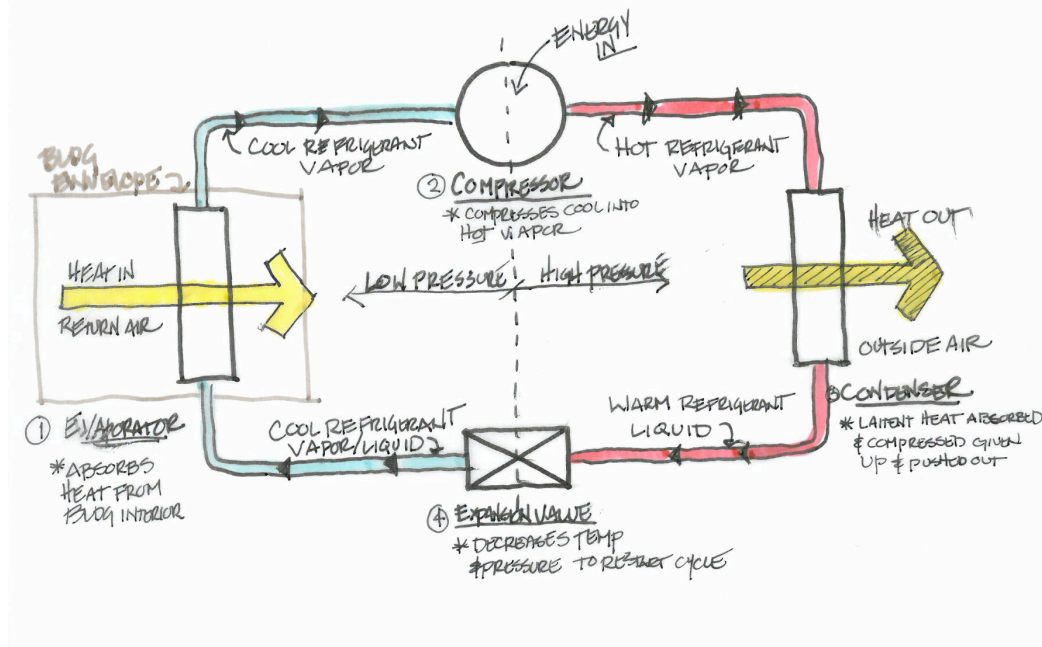 ENERGY
IN
COOL REFRIGERANT
VAPOR
HOT REFRIGERANT
VAPOR
BLDG
ENVELOPE
② COMPRESSOR
* COMPRESSES COOL INTO
HOT VAPOR
HEAT IN
RETURN AIR
LOW PRESSURE
HIGH PRESSURE
HEAT OUT
OUTSIDE AIR
① EVAPORATOR
* ABSORBS
HEAT FROM
BLDG INTERIOR
COOL REFRIGERANT
VAPOR/LIQUID
WARM REFRIGERANT
LIQUID
③ CONDENSER
* LATENT HEAT ABSORBED
& COMPRESSED GIVEN
UP & PUSHED OUT
④ EXPANSION VALVE
* DECREASES TEMP
& PRESSURE TO RESTART CYCLE